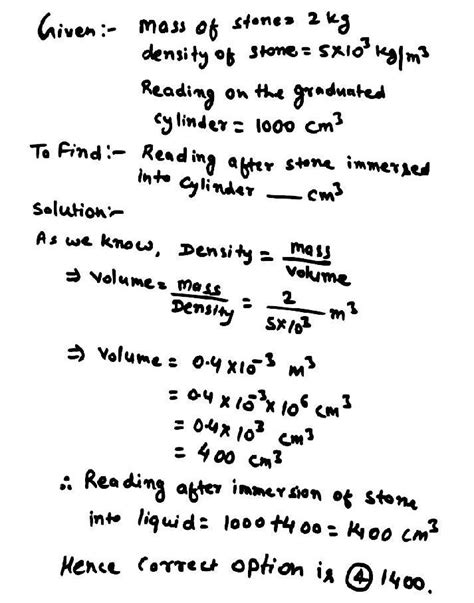 Given:- mass of stone= 2 kg
density of stone = 5×10³ kg/m³
Reading on the graduated
cylinder = 1000 cm³
To Find:- Reading after stone immersed
into cylinder ___ cm³
Solution:-
As we know, Density = mass/volume
⇒ Volume = mass/Density = 2/5×10³ m³
⇒ Volume = 0.4×10⁻³ m³
= 0.4 × 10⁻³ × 10⁶ cm³
= 0.4× 10³ cm³
= 400 cm³
∴ Reading after immersion of stone
into liquid = 1000+400 = 1400 cm³
Hence correct option is ④ 1400.